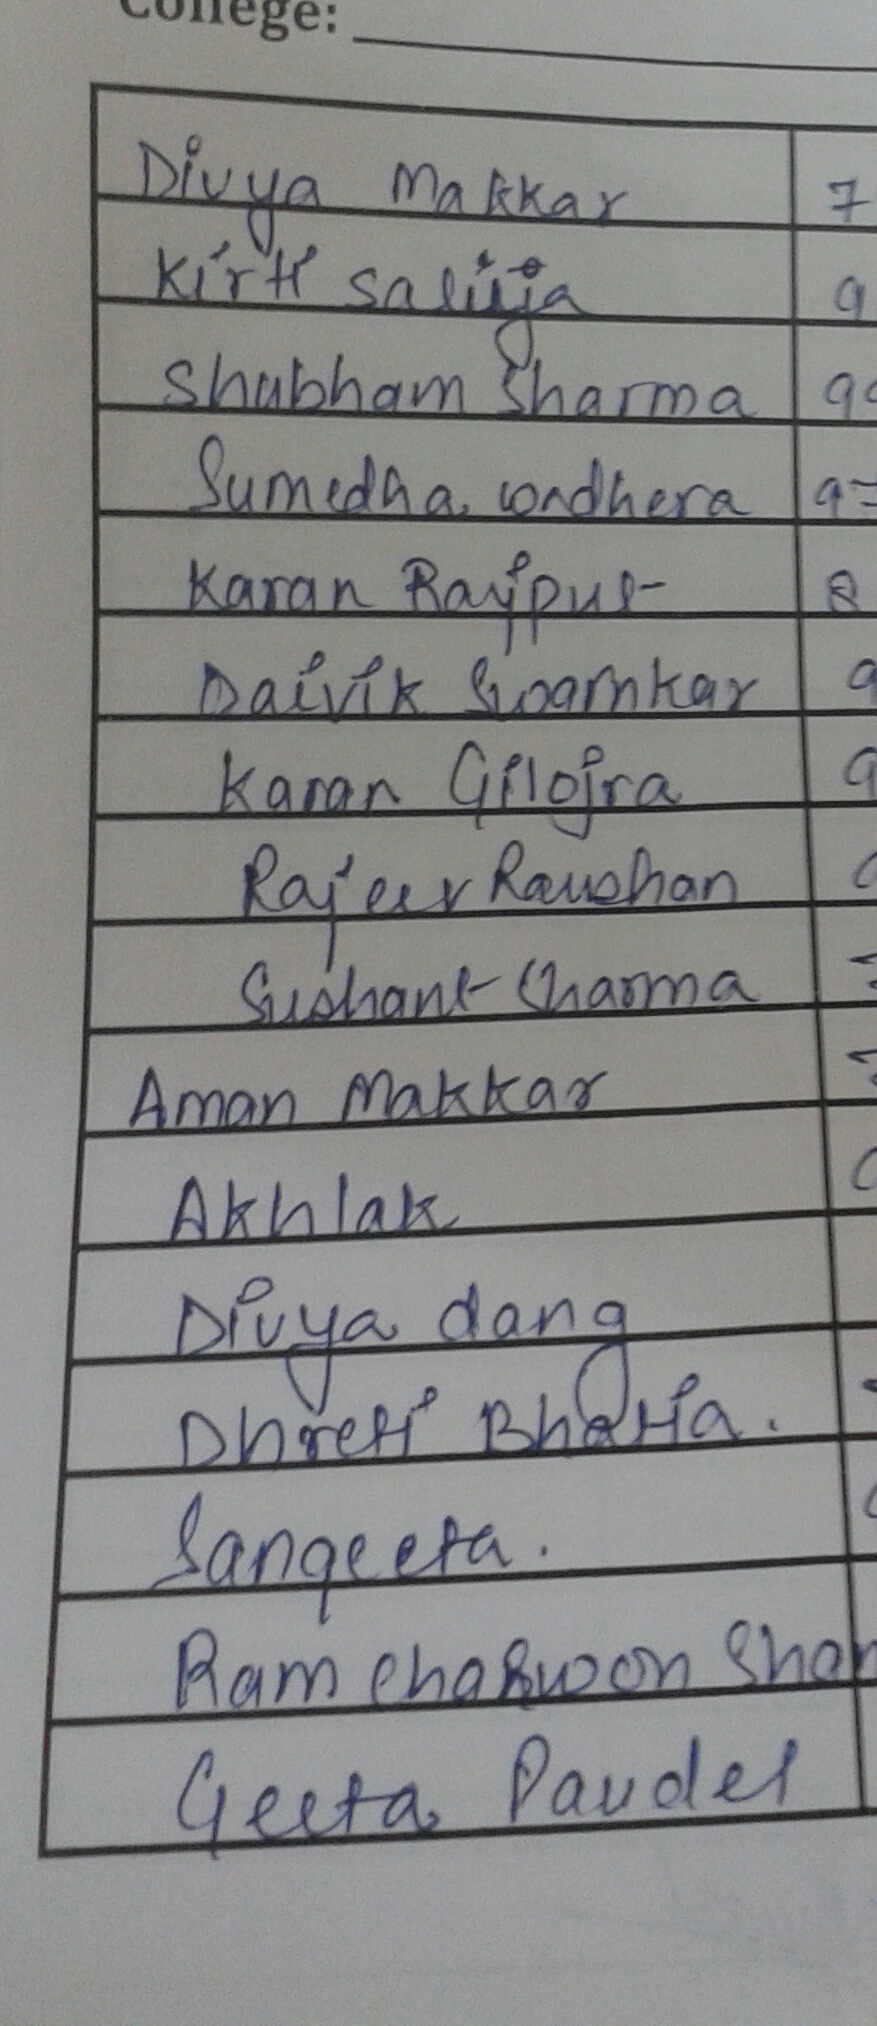 College:
Divya Makkar 7
Kirti Saluja 9
Shubham Sharma 9
Sumedha wadhera 97
Karan Rajput 8
Daivik Swarnkar 9
Karan Gilojra 9
Rajeev Raushan
Sushant Sharma
Aman Makkar
Akhlak
Divya dang
Dhreti Bhatia.
Sangeeta.
Ram
Geeta Paudel